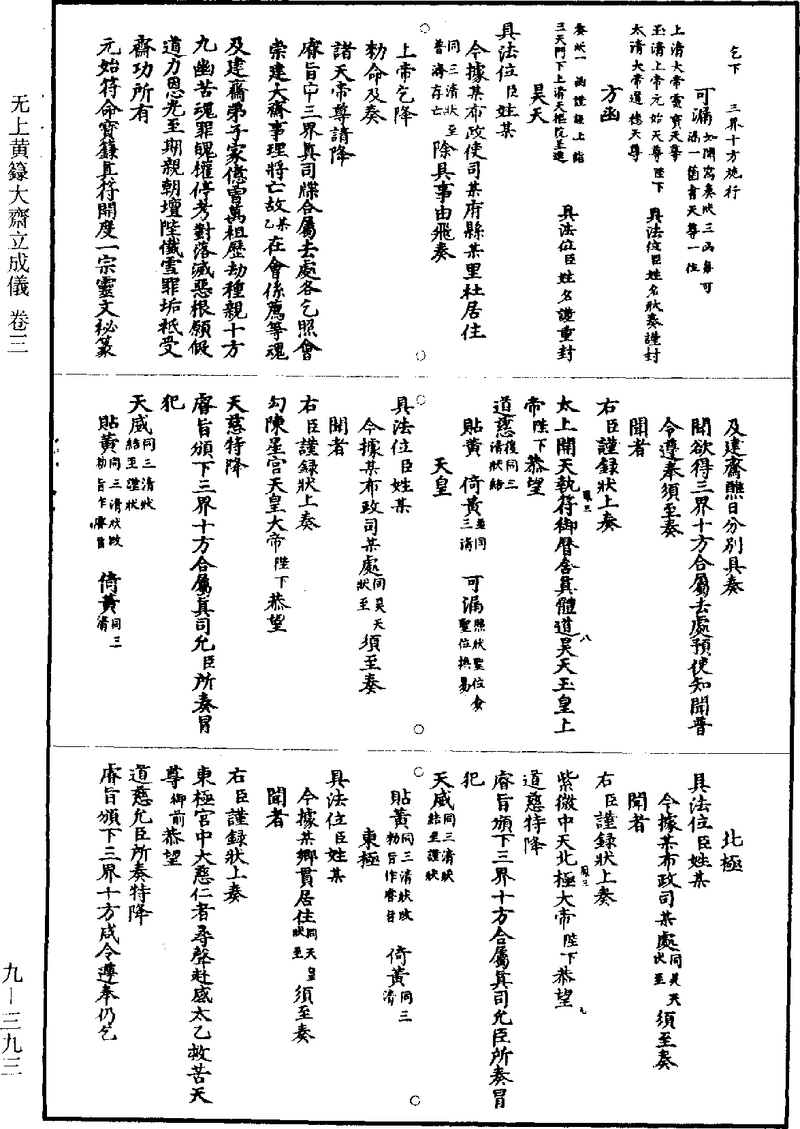 乞下　三界十方施行
可漏如開寫奏狀三函每可漏一箇書天尊一位
上清大帝靈寶天尊
玉清上帝元始天尊陛下　具法位臣姓名狀奏謹封
太清大帝道德天尊
方函
奏狀一　函謹謹上詣
三天門下上清天樞院呈進　具法位臣姓名謹重封
昊天
具法位臣姓某
今據某布政使司某府縣某里社居住
同三清狀至普濟存亡除具事由飛奏
上帝乞降
勑命及奏
諸天帝尊請降
睿旨中三界真司牒合屬去處各乞照會
崇建大齋事理將亡故某乙在會係薦等魂
及建齋弟子家億曾萬祖歷劫種親十方
九幽苦魂罪魄權停考對落滅惡根願假
道力恩光至期親朝壇陛懺雪罪垢祇受
齋功所有
元始符命寶籙真符開度一宗靈文秘篆
及建齋醮日分別具奏
聞欲得三界十方合屬去處預使知聞普
令遵奉須至奏
聞者
右臣謹録狀上奏
太上開天執符御曆含真體道昊天玉皇上
帝陛下恭望
道慈後同三清狀結
貼黄　倚黄並同三清　可漏照狀聖位食聖位換易
天皇
具法位臣姓某
今據某布政司某處同昊天狀至須至奏
聞者
右臣謹録狀上奏
勾陳星宮天皇大帝陛下恭望
天慈特降
睿旨頒下三界十方合屬真司允臣所奏冒
犯
天威同三清狀結至謹狀
貼黄同三清狀改勑旨作睿旨　倚黄同三清
北極
具法位臣姓某
今據某布政司某處同昊天狀至須至奏
聞者
右臣謹録狀上奏
紫微中天北極大帝陛下恭望
道慈特降
睿旨頒下三界十方合屬真司允臣所奏冒
犯
天威同三清狀結至謹狀
貼黄同三清狀改勑旨作睿旨　倚黄同三清
東極
具法位臣姓某
今據某鄉貫居住同天皇狀至須至奏
聞者
右臣謹録狀上奏
東極宮中大慈仁者尋聲赴感太乙救苦天
尊御前恭望
道慈允臣所奏特降
睿旨頒下三界十方咸令遵奉仍乞
无上黄籙大齋立成儀 卷三
九—三九三